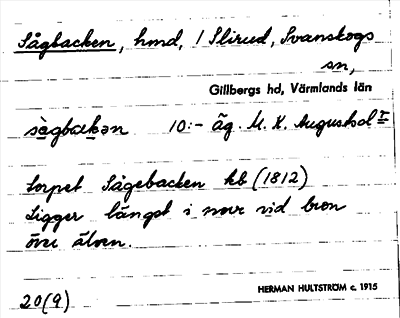 Sågbacken, hmd, 1 Slirud, Svanskogs
sn,
Gillbergs hd, Värmlands län
sàgbakən 10:- äg. M. K. Augustsol I
torpet Sågebacken kb (1812)
Ligger längst i norr vid bron
över älven.
20(9)
HERMAN HULTSTRÖM c. 1915